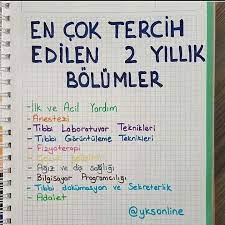 EN ÇOK TERCİH
EDİLEN 2 YILLIK
BÖLÜMLER
-İlk ve Acil Yardım
-Anestezi
-Tıbbi Laboratuvar Teknikleri
-Tıbbi Görüntüleme Teknikleri
-Fizyoterapi
-Ağız ve diş sağlığı
-Bilgisayar Programcılığı
-Tıbbi dokümasyon ve Sekreterlik
-Adalet
@yksonline